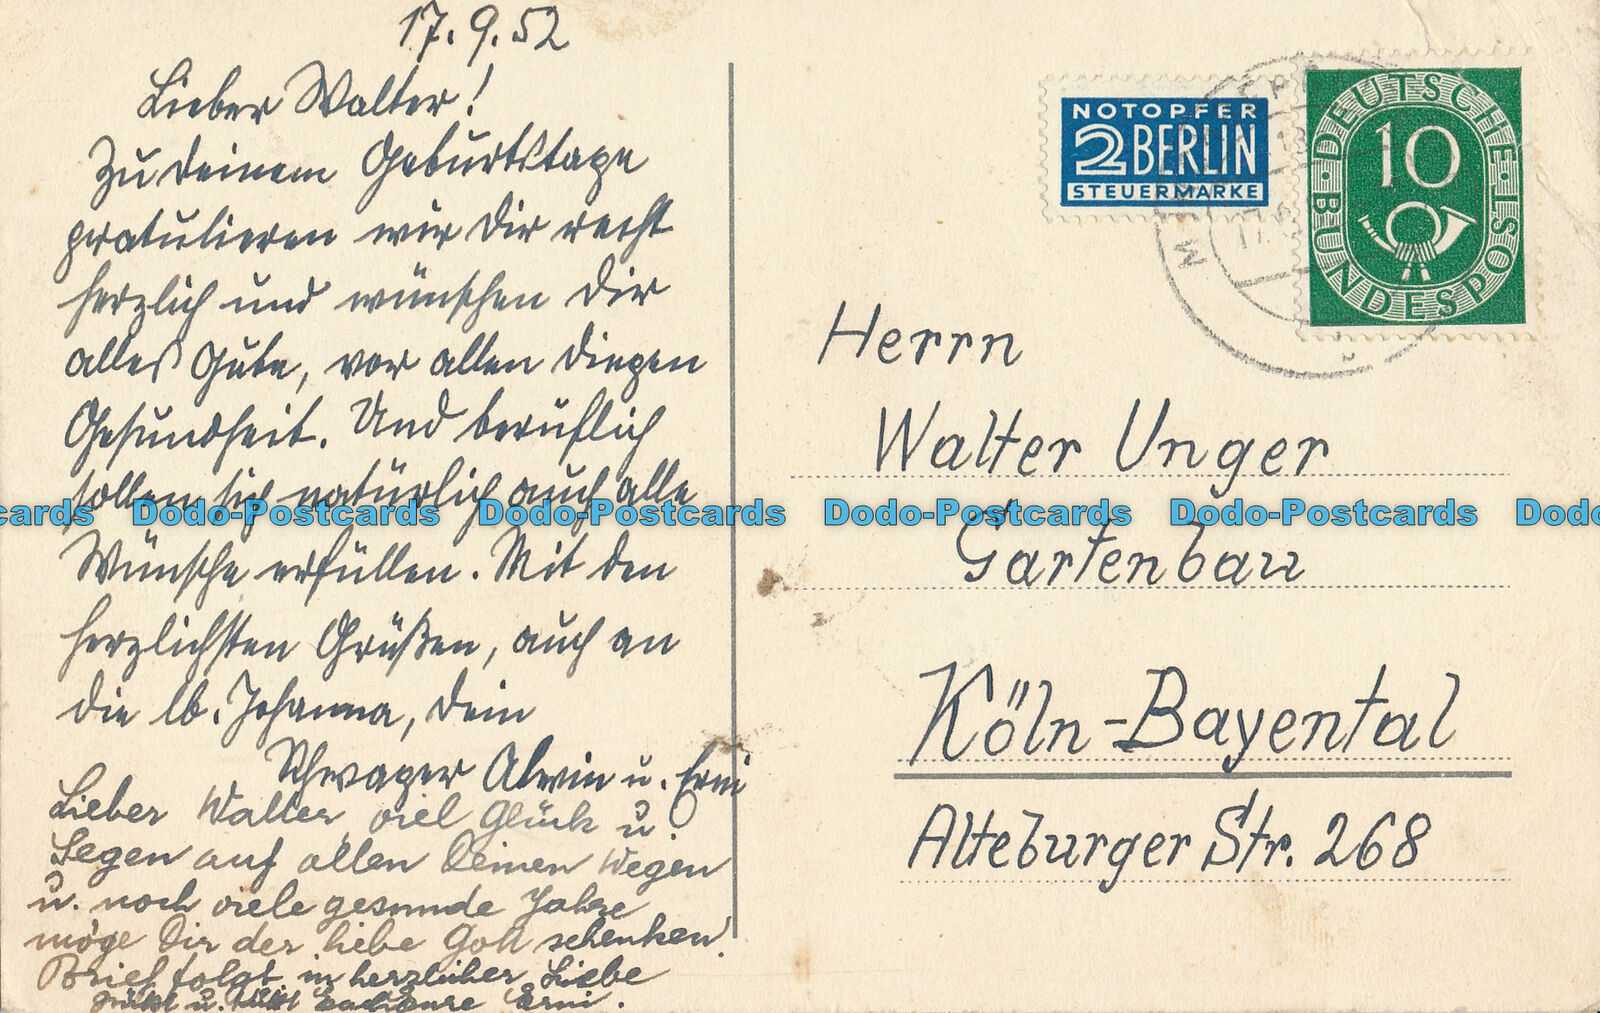 17.9.52
Lieber Walter!
Zu deinem Geburtstage
gratulieren wir Dir recht
herzlich und wünschen Dir
alles Gute, vor allen Dingen
Gesundheit. Und beruflich
sollen sich natürlich auch alle
Wünsche erfüllen. Mit den
herzlichsten Grüßen, auch an
die lb. Johanna, Dein
Schwager Alwin u. Erni
Lieber Walter, viel Glück u.
Segen auf allen Deinen Wegen
u. noch viele gesunde Jahre
möge Dir der liebe Gott schenken!
Brief folgt, in herzlicher Liebe
grüßt u. küßt Erni.
NOTOPFER
2 BERLIN
STEUERMARKE
DEUTSCHE BUNDESPOST
10
Herrn
Walter Unger
Gartenbau
Köln-Bayental
Alteburger Str. 268
Dodo-Postcards Dodo-Postcards Dodo-Postcards Dodo-Postcards